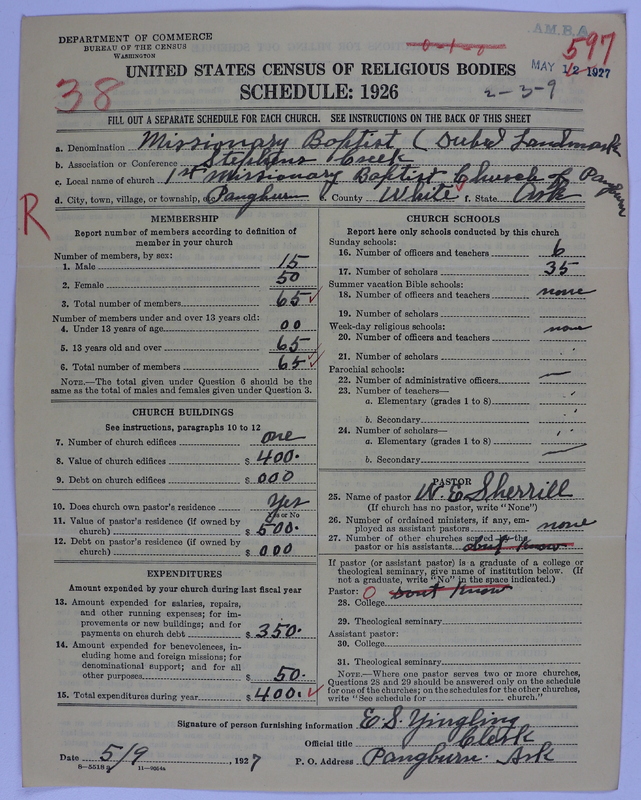 DEPARTMENT OF COMMERCE
BUREAU OF THE CENSUS
WASHINGTON
0-1-0
A.M.B.A
597
MAY 12 1927
UNITED STATES CENSUS OF RELIGIOUS BODIES
38
SCHEDULE: 1926
2-3-9
FILL OUT A SEPARATE SCHEDULE FOR EACH CHURCH. SEE INSTRUCTIONS ON THE BACK OF THIS SHEET
a. Denomination Missionary Baptist ( Landmark
b. Association or Conference Stephens Creek
c. Local name of church 1st Missionary Baptist Church of Pangburn
d. City, town, village, or township, etc. Pangburn e. County White f. State Ark
R
MEMBERSHIP
Report number of members according to definition of member in your church
Number of members, by sex:
1. Male 15
2. Female 50
3. Total number of members 65
Number of members under and over 13 years old:
4. Under 13 years of age 00
5. 13 years old and over 65
6. Total number of members 65
NOTE.—The total given under Question 6 should be the same as the total of males and females given under Question 3.
CHURCH BUILDINGS
See instructions, paragraphs 10 to 12
7. Number of church edifices one
8. Value of church edifices $ 400.
9. Debt on church edifices $ 000
10. Does church own pastor's residence Yes
Yes or No
11. Value of pastor's residence (if owned by church) $ 500.
12. Debt on pastor's residence (if owned by church) $ 000
EXPENDITURES
Amount expended by your church during last fiscal year
13. Amount expended for salaries, repairs, and other running expenses; for improvements or new buildings; and for payments on church debt $ 350.
14. Amount expended for benevolences, including home and foreign missions; for denominational support; and for all other purposes $ 50.
15. Total expenditures during year $ 400.
CHURCH SCHOOLS
Report here only schools conducted by this church
Sunday schools:
16. Number of officers and teachers 6
17. Number of scholars 35
Summer vacation Bible schools:
18. Number of officers and teachers none
19. Number of scholars
Week-day religious schools: none
20. Number of officers and teachers
21. Number of scholars
Parochial schools:
22. Number of administrative officers
23. Number of teachers—
a. Elementary (grades 1 to 8)
b. Secondary
24. Number of scholars—
a. Elementary (grades 1 to 8)
b. Secondary
PASTOR
25. Name of pastor W. E Sherrill
(If church has no pastor, write "None")
26. Number of ordained ministers, if any, employed as assistant pastors none
27. Number of other churches served by the pastor or his assistants dont know
If pastor (or assistant pastor) is a graduate of a college or theological seminary, give name of institution below. (If not a graduate, write "No" in the space indicated.)
Pastor: 0 dont know
28. College
29. Theological seminary
Assistant pastor:
30. College
31. Theological seminary
NOTE.—Where one pastor serves two or more churches, Questions 28 and 29 should be answered only on the schedule for one of the churches; on the schedules for the other churches, write "See schedule for church."
Signature of person furnishing information E. S. Yingling
Official title Clerk
Date 5/9, 1927
P. O. Address Pangburn. Ark